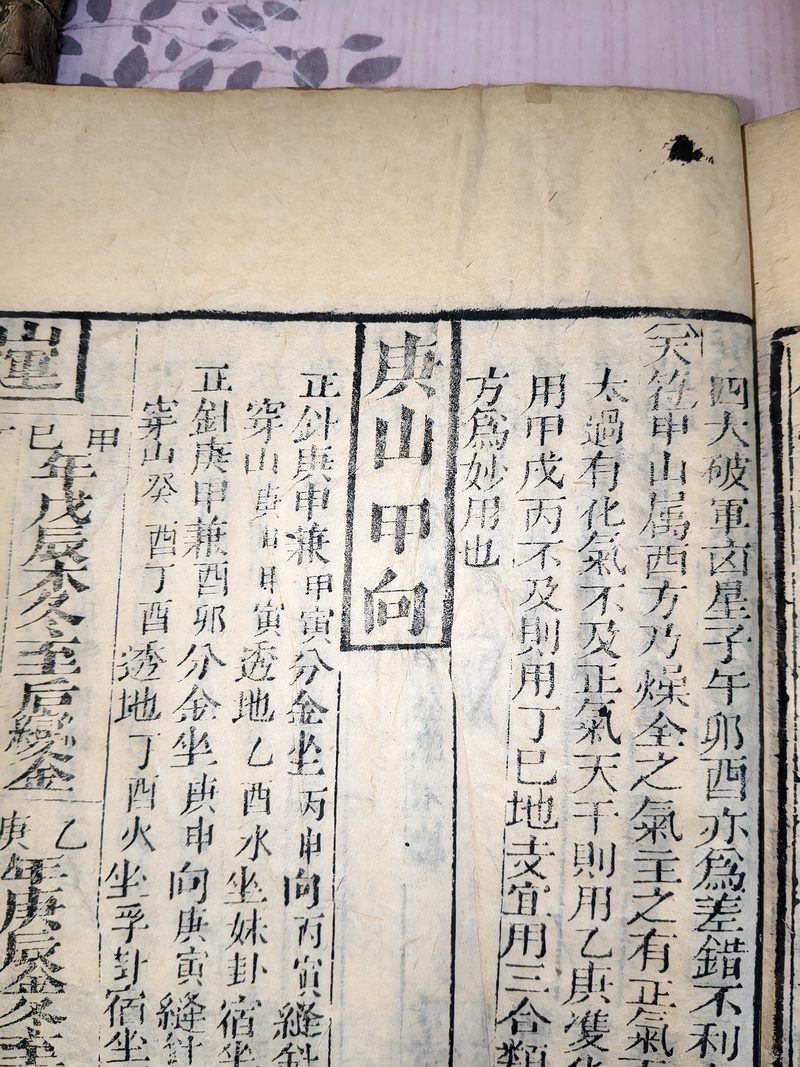 四大破軍㐫星子午卯酉亦爲差錯不利
天符申山属西方乃燥金之氣主之有正氣
太過有化氣不及正氣天干則用乙庚凄化
用甲戊丙不及則用丁巳地支宜用三合類
方爲妙用也
庚山甲向
正針庚申兼甲寅分金坐丙申向丙寅縫針
穿山庚申甲寅透地乙酉水坐妹卦宿坐
正針庚甲兼酉卯分金坐庚申向庚寅縫針
穿山癸酉丁酉透地丁酉火坐孚卦宿坐
山運
甲
巳
年戊辰木冬至后變金
乙
庚
年庚辰金冬至